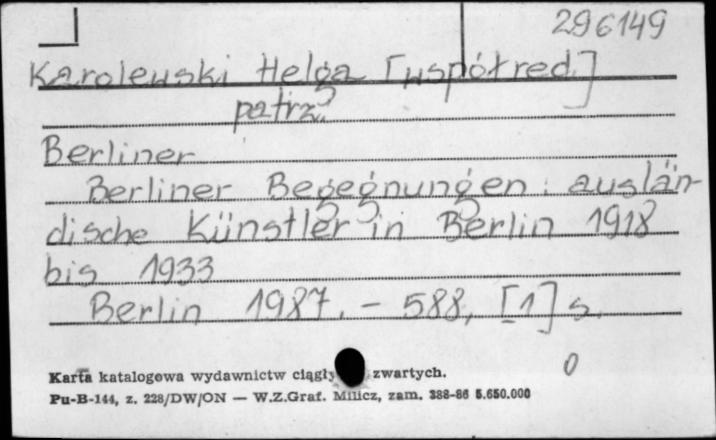 296149
Karolewski Helga [współred.]
patrz.
Berliner
Berliner Begegnungen : auslän-
dische Künstler in Berlin 1918
bis 1933
Berlin 1987. - 588, [1] s.
0
Karta katalogowa wydawnictw ciągły zwartych.
Pu-B-144, z. 228/DW/ON — W.Z.Graf. Milicz, zam. 388-86 5.650.000